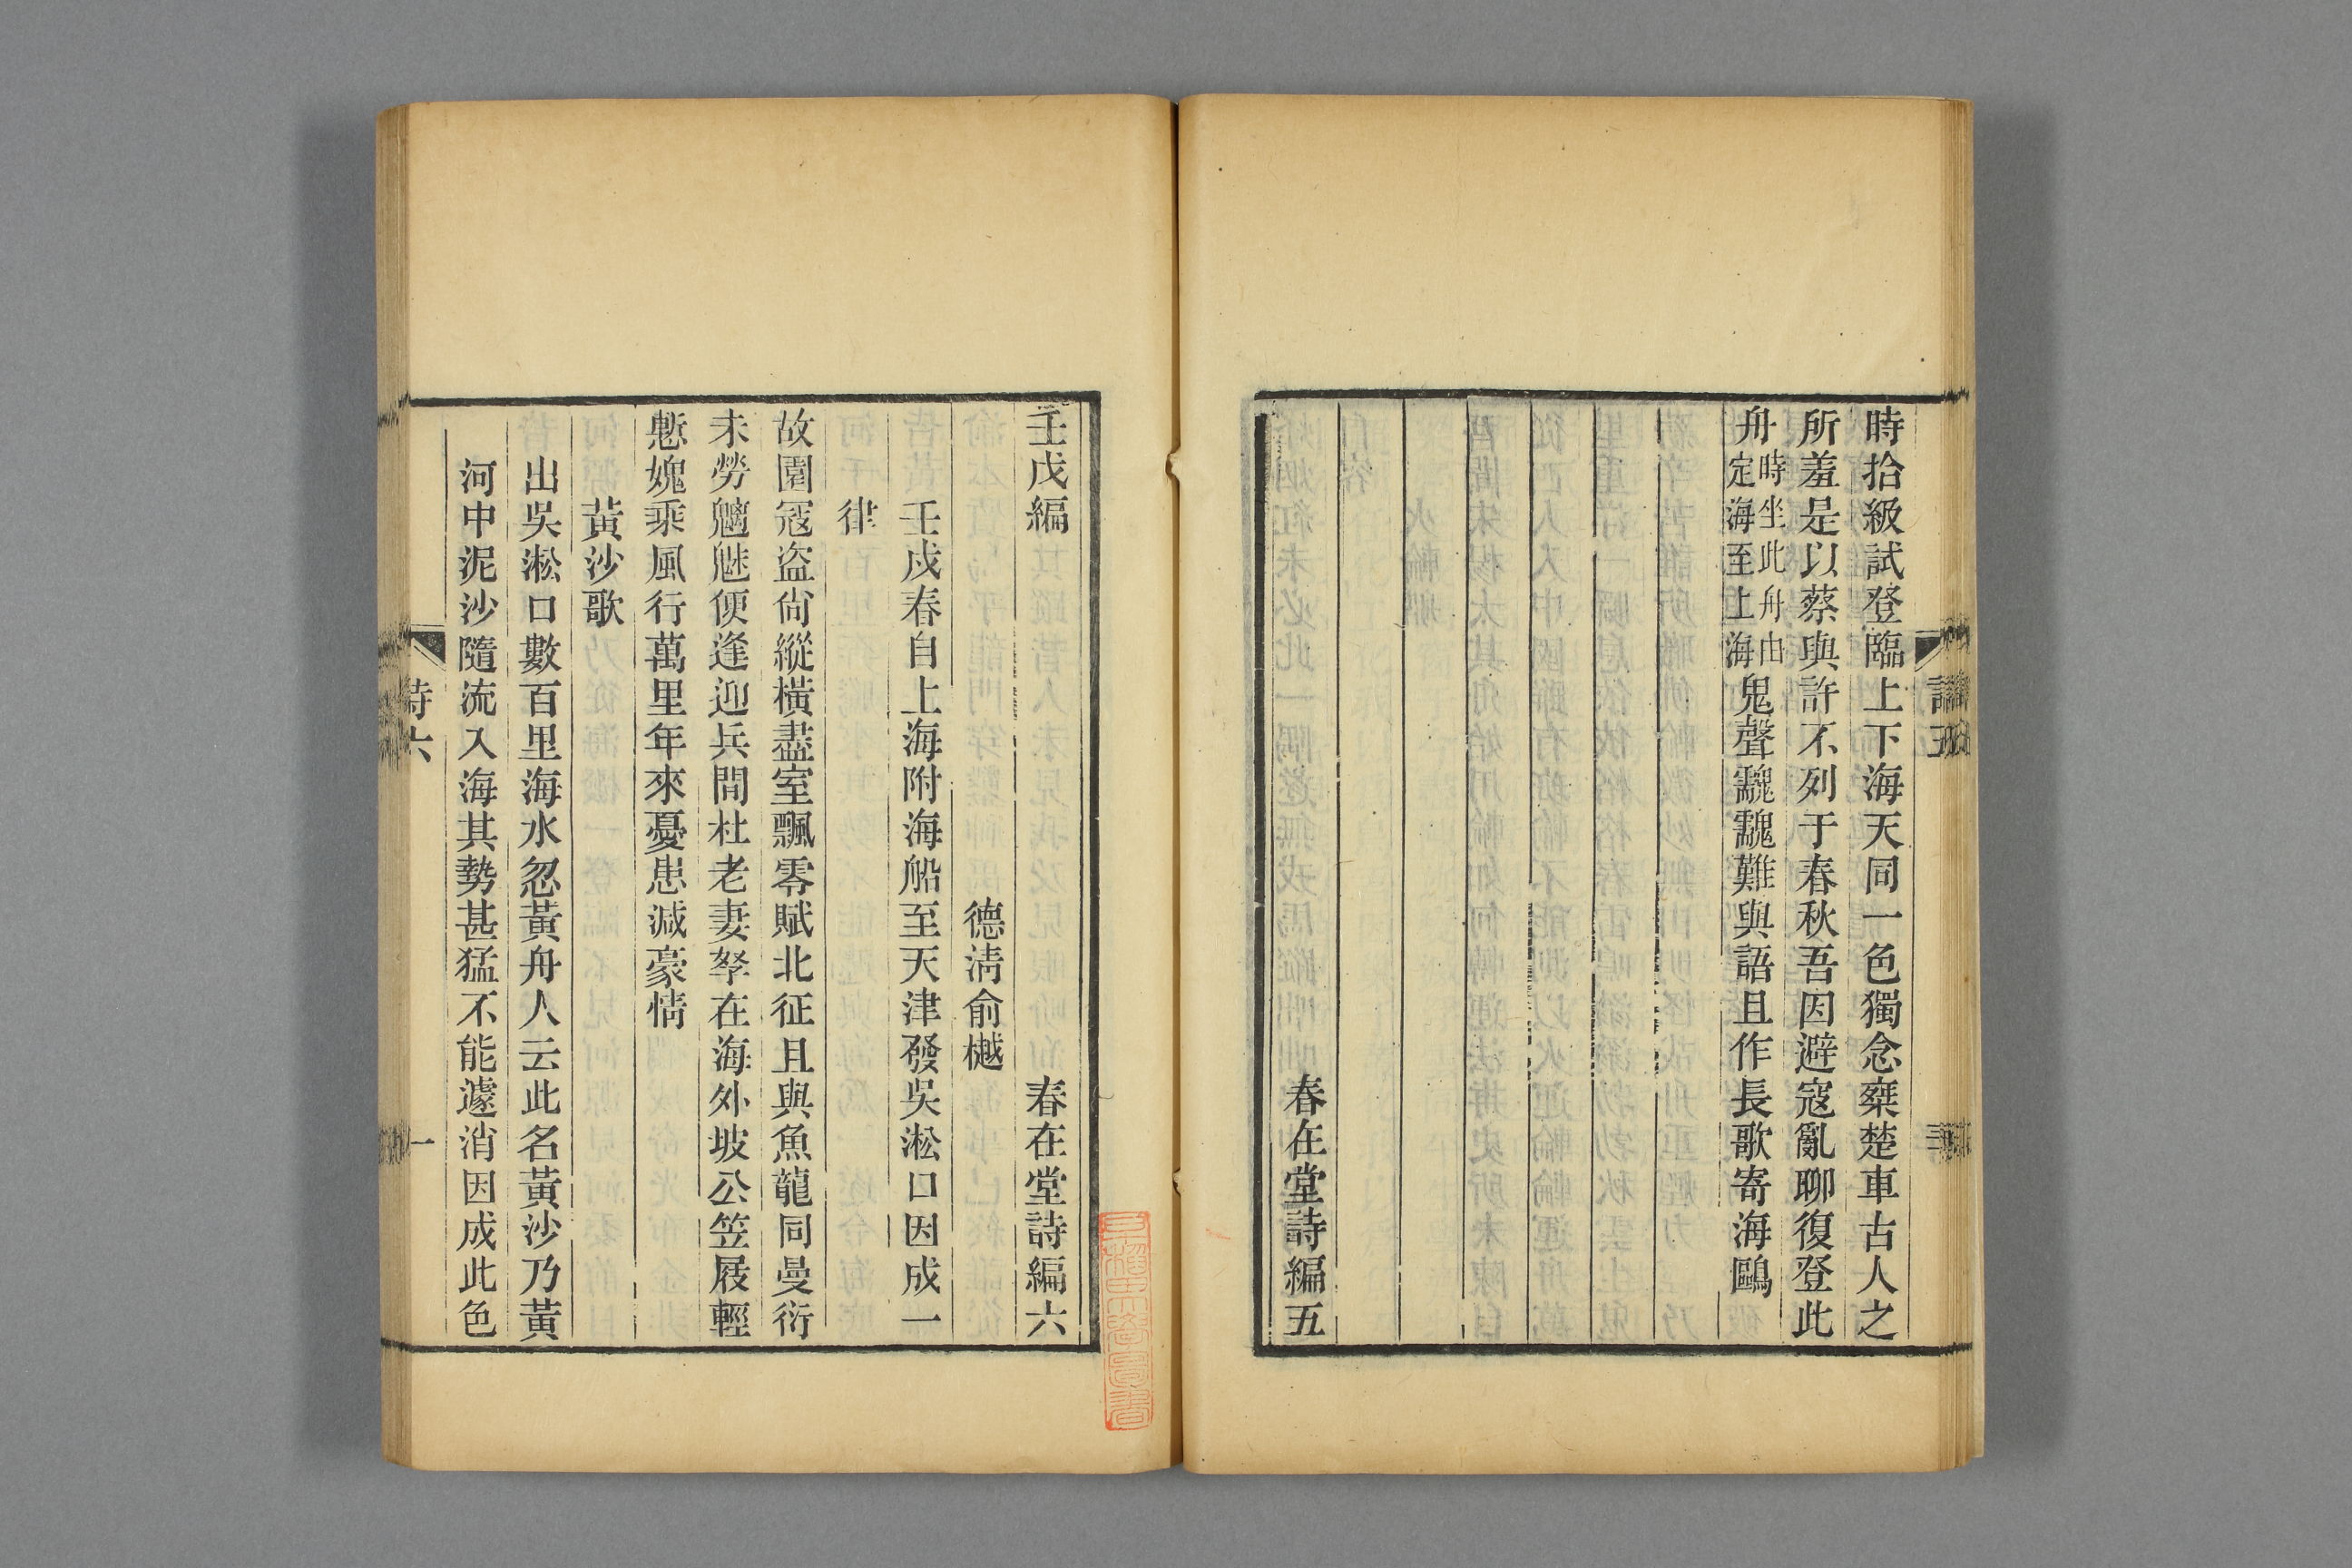 時拾級試登臨上下海天同一色獨念椉楚車古人之
所羞是以蔡與許不列于春秋吾因避寇亂聊復登此
舟時坐此舟由定海至上海鬼聲魗魗難與語且作長歌寄海鷗
春在堂詩編五
壬戌編
春在堂詩編六
德清俞樾
壬戌春自上海附海船至天津發吳淞口因成一
律
故園寇盜尙縱橫盡室飄零賦北征且與魚龍同曼衍
未勞魑魅便逢迎兵間杜老妻孥在海外坡公笠屐輕
慙媿乘風行萬里年來憂患減豪情
黃沙歌
出吳淞口數百里海水忽黃舟人云此名黃沙乃黃
河中泥沙隨流入海其勢甚猛不能遽消因成此色
詩六
一